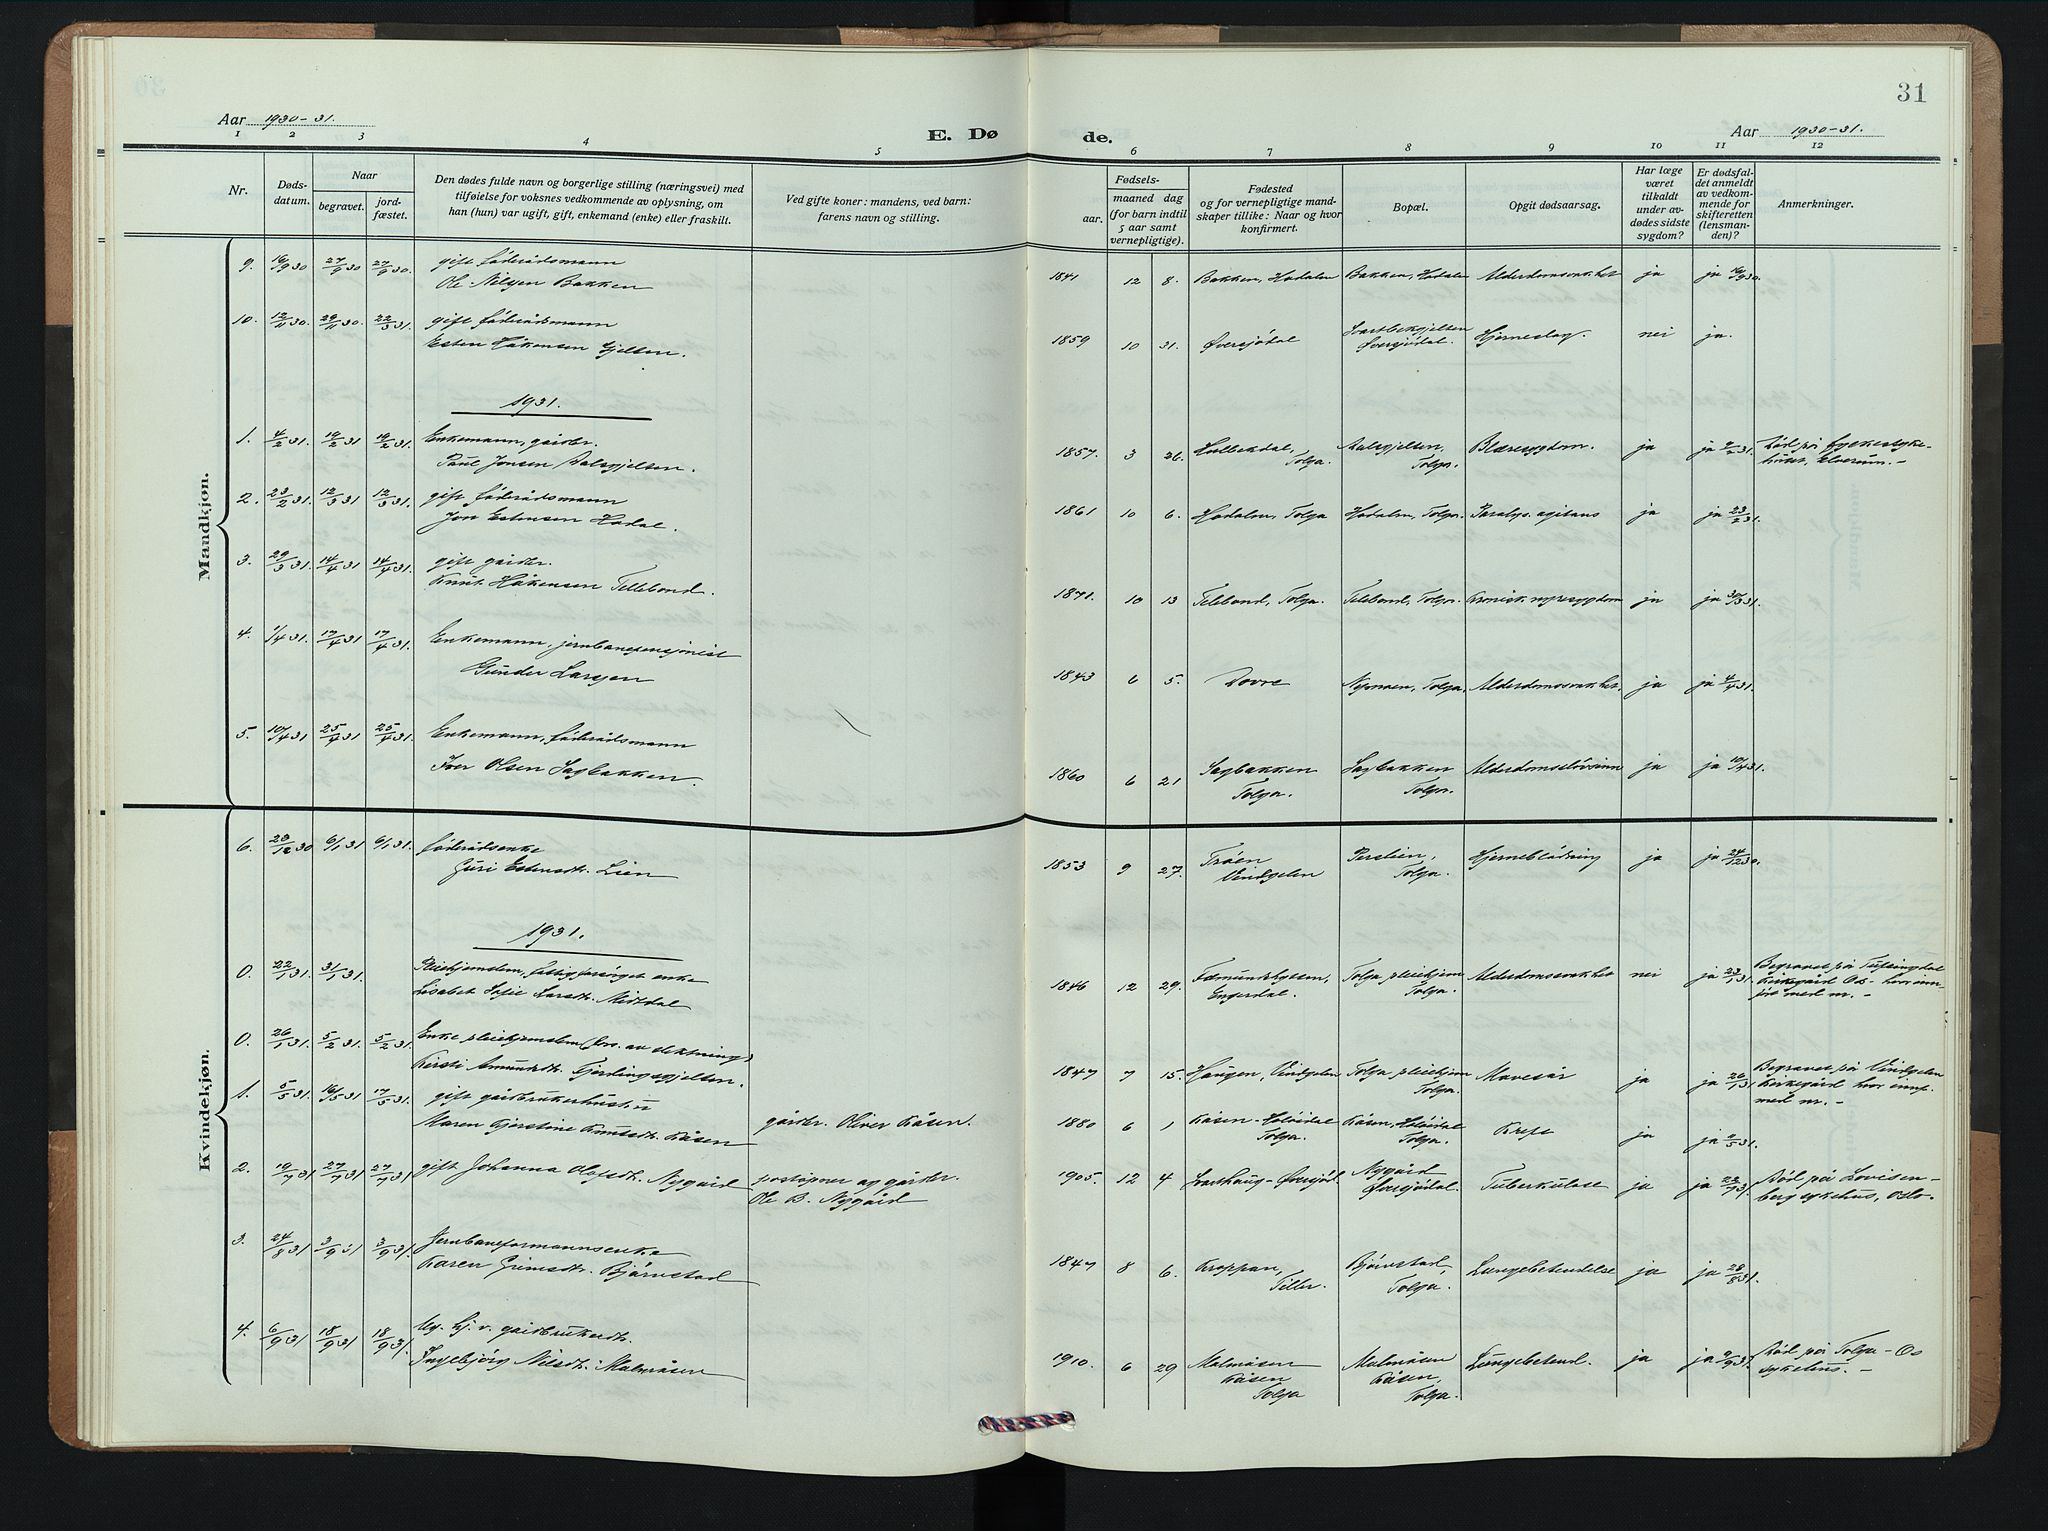 31
Aar 1930-31.
E. Dø de.
Aar 1930-31.
1 2 3 4 5 6 7 8 9 10 11 12
Nr.
Døds-
datum.
Naar
begravet.
jord-
fæstet.
Den dødes fulde navn og borgerlige stilling (næringsvei) med
tilføielse for voksnes vedkommende av oplysning, om
han (hun) var ugift, gift, enkemand (enke) eller fraskilt.
Ved gifte koner: mandens, ved barn:
farens navn og stilling.
Fødsels-
aar.
maaned dag
(for barn indtil
5 aar samt
vernepligtige).
Fødested
og for vernepligtige mand-
skaper tillike: Naar og hvor
konfirmert.
Bopæl.
Opgit dødsaarsag.
Har læge
været
tilkaldt
under av-
dødes sidste
sygdom?
Er dødsfal-
det anmeldt
av vedkom-
mende for
skifteretten
(lensman-
den)?
Anmerkninger.
Mandkjøn.
9. 16/9 30 27/9 30 27/9 30. gift føderådsmann
Ole Nilsen Bakken
1841 12 8. Bakken, Hodalen Bakken, Hodalen Alderdomssvakhet ja ja 16/9 30.
10. 12/11 30. 29/11 30. 22/3 31. gift føderådsmann
Esten Håkensen Gjelten.
1859 10 31. Øversjødal Svartbekgjelten Øversjødal. Hjerneslag. nei ja.
1931.
1. 4/2 31. 19/2 31 19/2 31. Enkemann, gårdbr.
Paul Jonsen Aalsgjelten.
1857 3 26. Hulbekdal, Tolga. Aalsgjelten, Tolga. Blæresygdom. ja ja 9/2 31. Død på Lykkesyke-
huset, Elverum.-
2. 23/2 31. 12/3 31 12/3 31. gift føderådsmann
Jon Estensen Hodal.
1861 10 6. Hodalen, Tolga Hodalen, Tolga. Paralys. agitans ja ja 23/2 31.
3. 29/3 31. 14/4 31 14/4 31. gift gårdbr.
Knut Håkensen Tellebond.
1871. 10 13 Telebond, Tolga. Telebond, Tolga. Kronisk nyresygdom ja ja 30/3 31.
4. 1/4 31. 17/4 31 17/4 31. Enkemann, jernbanepensjonist
Gunder Larsen
1843 6 5. Dovre Nymoen, Tolga. Alderdomssvakhet. ja ja 4/4 31.
5. 10/4 31 25/4 31 25/4 31. Enkemann, føderådsmann
Iver Olsen Sagbakken.
1860 6 21 Sagbakken Tolga. Sagbakken Tolga. Alderdomssløvsinn ja ja 10/4 31.
Kvindekjøn.
6. 23/12 30 6/1 31 6/1 31. føderådsenke
Guri Estensdtr. Lien
1853 9 27. Trøen Vindgelen Perslien, Tolga. Hjerneblødning ja ja 24/12 30.
1931.
0. 22/1 31. 31/1 31. Pleiehjemslem, fattigforsørget enke
Lisabet Sofie Larsdtr. Midtdal
1846 12 29. Femundshytten, Engerdal. Tolga pleiehjem Tolga. Alderdomssvakhet nei ja 23/1 31. Begravet på Tufsingdal
kirkegård Os - hvor inn-
ført med nr. -
0. 26/1 31. 5/2 31. 5/2 31. Enke pleiehjemslem fors. av slektninger
Kirsti Amundsdtr. Gjerdingsgjelten.
1847 7 15. Haugen, Vindgelen Tolga pleiehjem Tolga. Mavesår ja ja 26/1 31. Begravet på Vindgelen
kirkegård hvor innf.
med nr. -
1. 5/5 31. 16/5 31 17/5 31. gift gårdbrukerhustru
Maren Kjerstine Knutsdtr. Kåsen gårdbr. Oliver Kåsen.
1880 6 1 Kåsen - Holøidal Tolga. Kåsen, Holøidal Tolga. Kreft ja ja 9/5 31.
2. 19/7 31 27/7 31 27/7 31. gift Johanna Olofsdtr. Nygård poståpner og gårdbr.
Ole B. Nygård
1905. 12 4 Svarthaug - Øversjød. Nygård Øversjødal. Tuberkulose ja ja 22/7 31. Død på Lovisen-
berg sykehus, Oslo.
3. 24/8 31 3/9 31 3/9 31. Jernbaneformannsenke
Karen Grimsdtr. Bjørnstad
1847 8 6. Kroppan, Tiller. Bjørnstad, Tolga. Lungebetendelse ja ja 28/8 31.
4. 6/9 31 18/9 31 18/9 31. Ug. hj. v. gårdbrukerdtr.
Ingebjørg Nilsdtr. Malmåsen
1910. 6 29 Malmåsen Kåsen Tolga Malmåsen Kåsen, Tolga. Lungebetend. ja ja 9/9 31. Død på Tolga - Os
sykehus.-